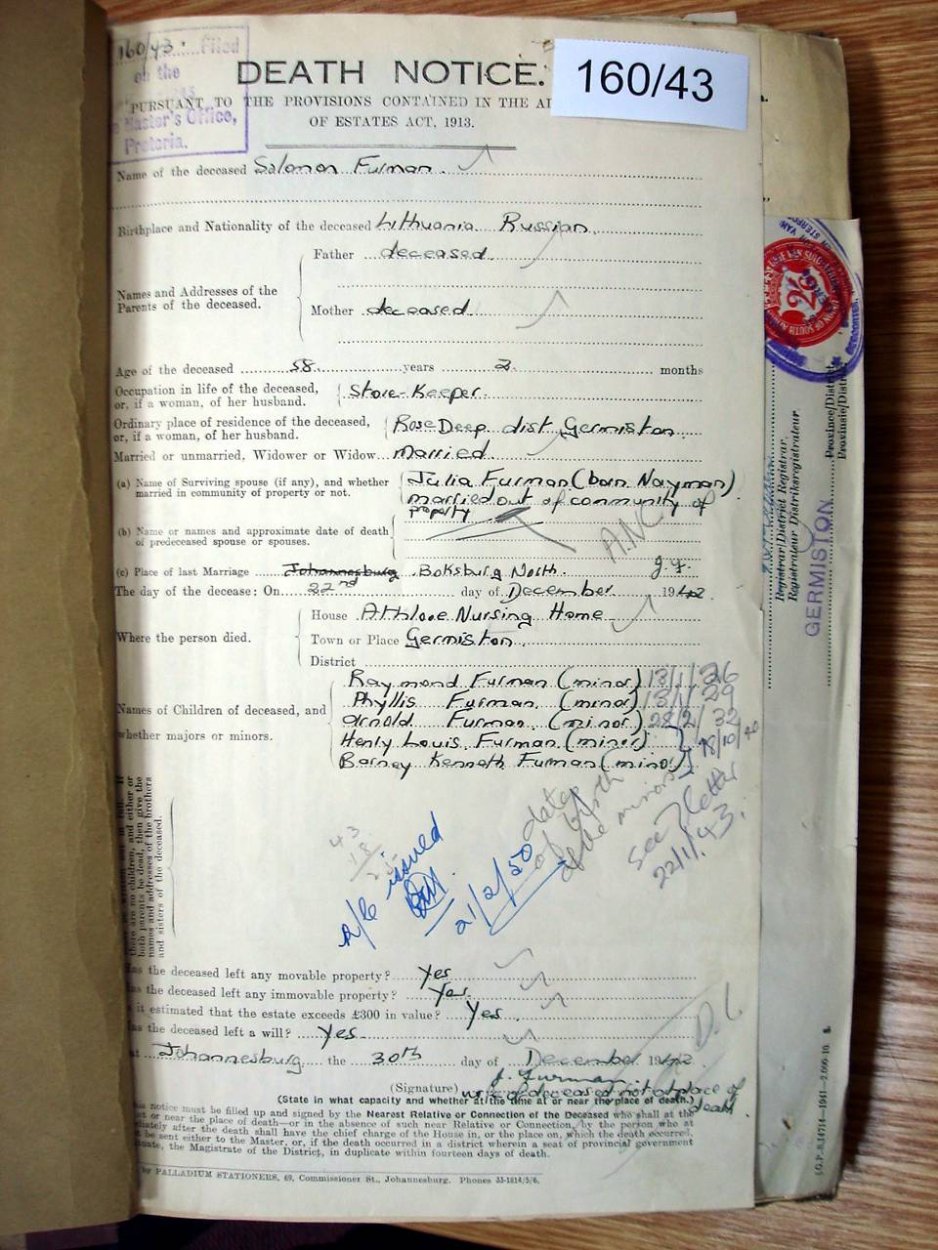 160/43. Filed
on the
Master's Office,
Pretoria.
160/43
DEATH NOTICE.
PURSUANT TO THE PROVISIONS CONTAINED IN THE
OF ESTATES ACT, 1913.
Name of the deceased Solomon Furman
Birthplace and Nationality of the deceased Lithuania Russian
Names and Addresses of the Parents of the deceased.
Father deceased
Mother deceased
Age of the deceased 58 years 2 months
Occupation in life of the deceased, or, if a woman, of her husband. Store-Keeper
Ordinary place of residence of the deceased, or, if a woman, of her husband. Rose Deep dist Germiston
Married or unmarried, Widower or Widow Married
(a) Name of Surviving spouse (if any), and whether married in community of property or not.
Julia Furman (born Nayman)
married out of community of
property
A.N.C.
(b) Name or names and approximate date of death of predeceased spouse or spouses.
(c) Place of last Marriage Johannesburg Boksburg North. J.F.
The day of the decease: On 22nd day of December 1942
Where the person died.
House Athlone Nursing Home
Town or Place Germiston
District
Names of Children of deceased, and whether majors or minors.
Raymond Furman (minor) 13/1/26
Phyllis Furman (minor) 13/1/29
Arnold Furman (minor) 28/2/32
Henly Louis Furman (minor) 18/10/40
Barney Kenneth Furman (minor)
there are no children, and either or
both parents be dead, then give the
names and addresses of the brothers
and sisters of the deceased.
dates
of birth
of the minors
See letter
22/1/43.
issued
21/2/50
Has the deceased left any movable property? Yes
Has the deceased left any immovable property? Yes
Is it estimated that the estate exceeds £300 in value? Yes
Has the deceased left a will? Yes
At Johannesburg the 30th day of December 1942
(Signature) J. Furman
wife of deceased not at place of
death
(State in what capacity and whether at the time at or near the place of death.)
This notice must be filled up and signed by the Nearest Relative or Connection of the Deceased who shall at the
at or near the place of death—or in the absence of such near Relative or Connection, by the person who at
immediately after the death shall have the chief charge of the House in, or the place on, which the death occurred,
be sent either to the Master, or, if the death occurred in a district wherein a seat of provincial government
situate, the Magistrate of the District, in duplicate within fourteen days of death.
PALLADIUM STATIONERS, 69, Commissioner St., Johannesburg. Phones 33-1814/5/6.
2/6
Registrar/District Registrar.
Registrateur/Distriksregistrateur.
GERMISTON
Province/District
Provinsie/Distrik